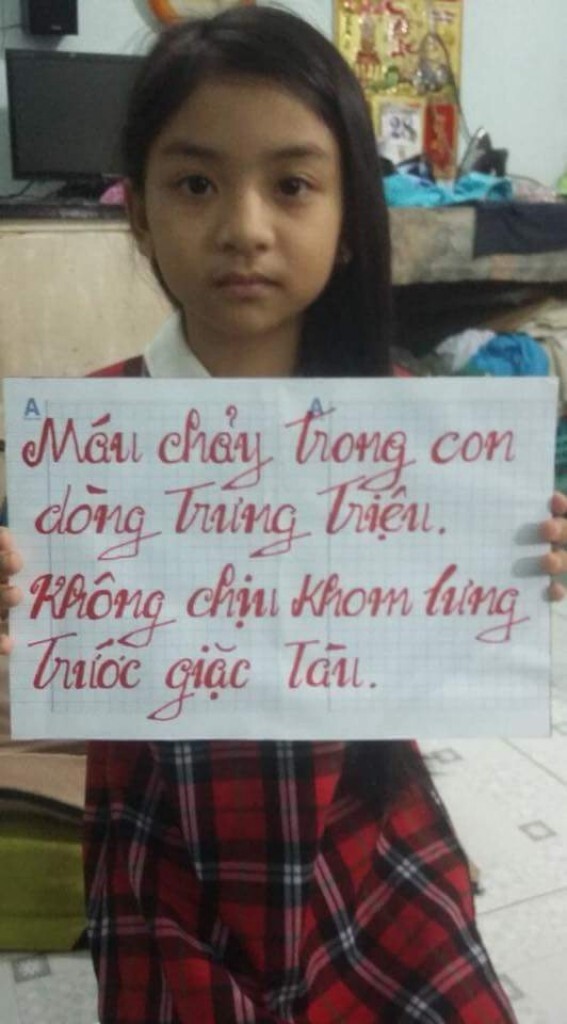 A A
Máu chảy trong con
dòng Trưng Triệu.
Không chịu khom lưng
Trước giặc Tàu.
28